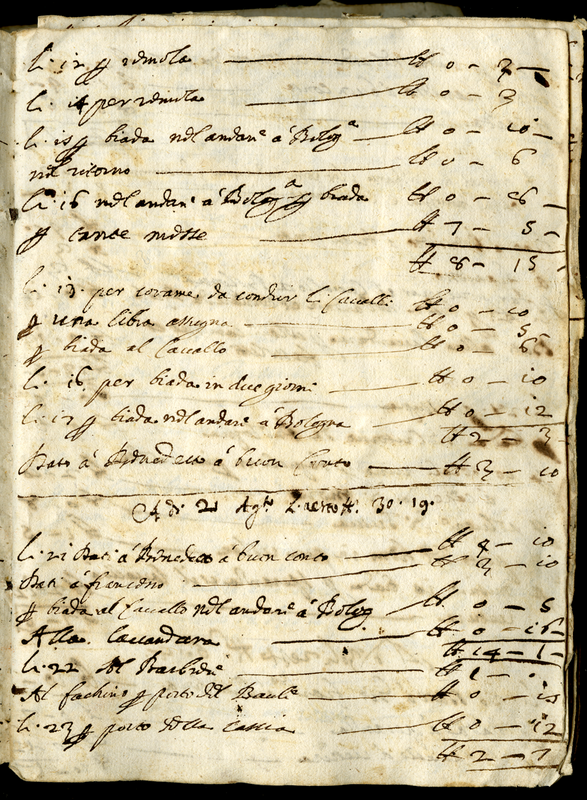 li. 12 p remola — ₶ 0 - 3 -
li. 14 per remola — ₶ 0 - 3
li. 15 p biada nell andare á Bologa — ₶ 0 - 10 -
nel ritorno — ₶ 0 - 6
li. 16 nell andare á Bologa p biada ₶ 0 - 26 -
p tante messe — ₶ 7 - 5 -
₶ 8 - 15 -
li. 13. per corame da condur li Cavalli ₶ 0 - 10
p una libra — ₶ 0 - 5 -
p biada al Cavallo — ₶ 0 - 6
li. 16 per biada in due giorni — ₶ 0 - 10
li. 17 p biada nell andare á Bologna — ₶ 0 - 12
₶ 2 - 3
Dati á Benedetto á buon Conto — ₶ 3 - 10
Adi. 21 Agto ₶. 30. 19.
li. 21 Dati á Benedetto á buon conto — ₶ 4 - 10
Dati á francesco — ₶ 3 - 10
p biada al Cavallo nell andare á Bolog ₶ 0 - 5
Alla lavandara — ₶ 0 - 16 -
₶ 14 - 1 -
li. 22 Al Barbiere — ₶ 1 - .
Al fachino p porto del Baule — ₶ 0 - 15
li. 23 p porto della cassia — ₶ 0 - 12
₶ 2 - 7